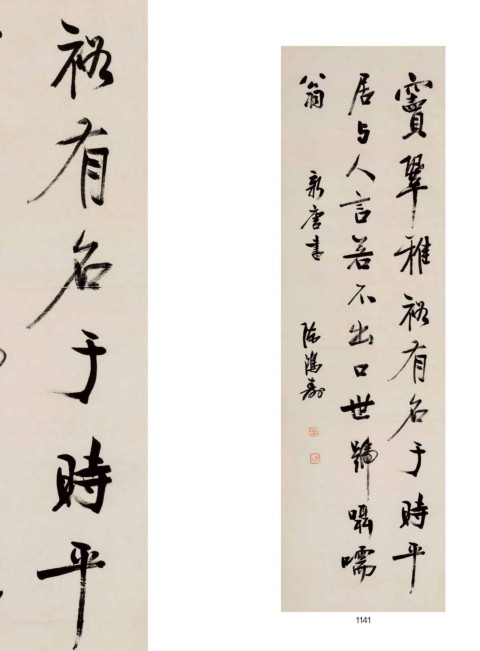 裕有名于時平
竇鞏雅裕有名于時平
居与人言若不出口世號囁嚅
翁 新唐書 陳鴻壽
1141